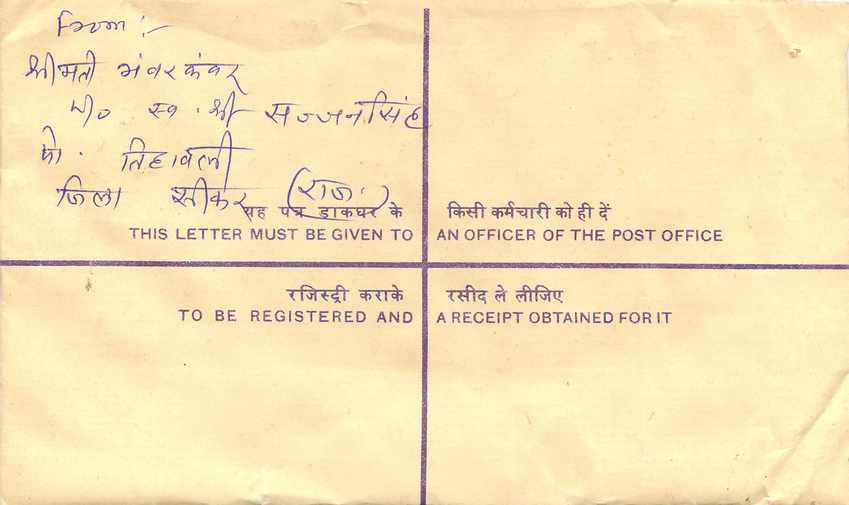 From :-
श्रीमती भंवर कंवर
W/o स्व. श्री सज्जनसिंह
पो. तिहावली
जिला सीकर (राज.)
यह पत्र डाकघर के किसी कर्मचारी को ही दें
THIS LETTER MUST BE GIVEN TO AN OFFICER OF THE POST OFFICE
रजिस्ट्री कराके रसीद ले लीजिए
TO BE REGISTERED AND A RECEIPT OBTAINED FOR IT